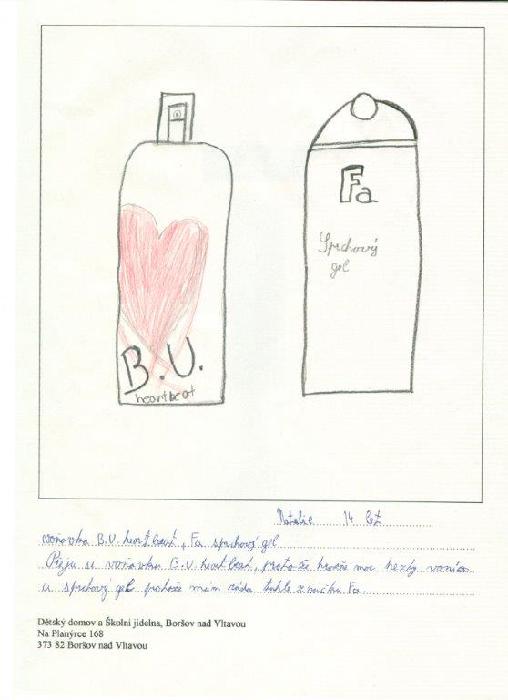 B.U.
heartbeat
Fa
Sprchový
gel
Natálie 14 let
voňavka B.U. heartbeat, Fa sprchový gel
voňavku B.U. heartbeat, protože moc hezky
a sprchový gel protože mám ráda tuhle značku Fa
Dětský domov a Školní jídelna, Boršov nad Vltavou
Na Planýrce 168
373 82 Boršov nad Vltavou